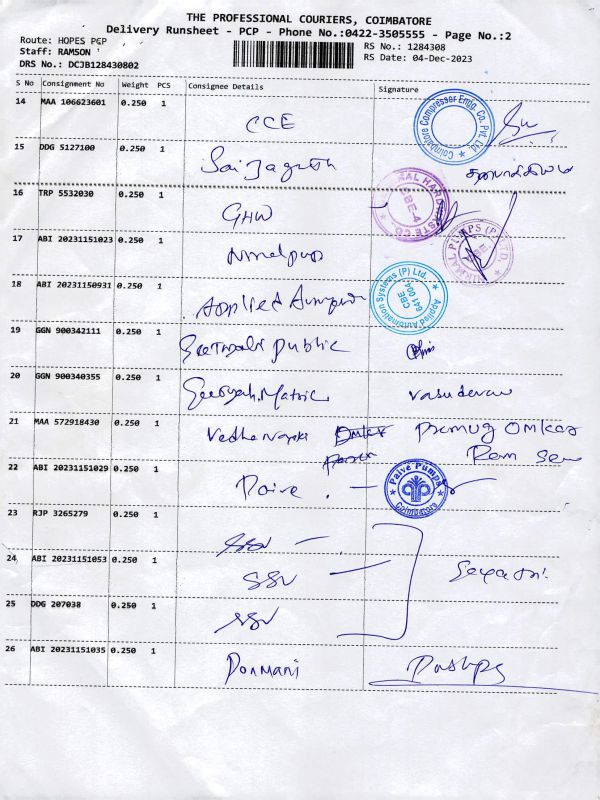 THE PROFESSIONAL COURIERS, COIMBATORE
Delivery Runsheet - PCP - Phone No.:0422-3505555 - Page No.:2
Route: HOPES PCP
RS No.: 1284308
Staff: RAMSON
RS Date: 04-Dec-2023
DRS No.: DCJB128430802
S No Consignment No Weight PCS Consignee Details Signature
14 MAA 106623601 0.250 1 CCE
Coimbatore Compressor Engg. Co. Pvt. Ltd.
15 DDG 5127100 0.250 1 Sai
16 TRP 5532030 0.250 1 GHW
17 ABI 20231151023 0.250 1
PUMPS (P) LTD.
18 ABI 20231150931 0.250 1 Applied
Applied Automation Systems (P) Ltd.
CBE
641 004
19 GGN 900342111 0.250 1 public
20 GGN 900340355 0.250 1 Matric Vasudevan
21 MAA 572918430 0.250 1 Vedhanayaki Omkar
Ram
22 ABI 20231151029 0.250 1 Paive
Paive Pumps
Coimbatore
23 RJP 3265279 0.250 1 SSV
24 ABI 20231151053 0.250 1 SSV
25 DDG 207038 0.250 1 SSV
26 ABI 20231151035 0.250 1 Ponmani